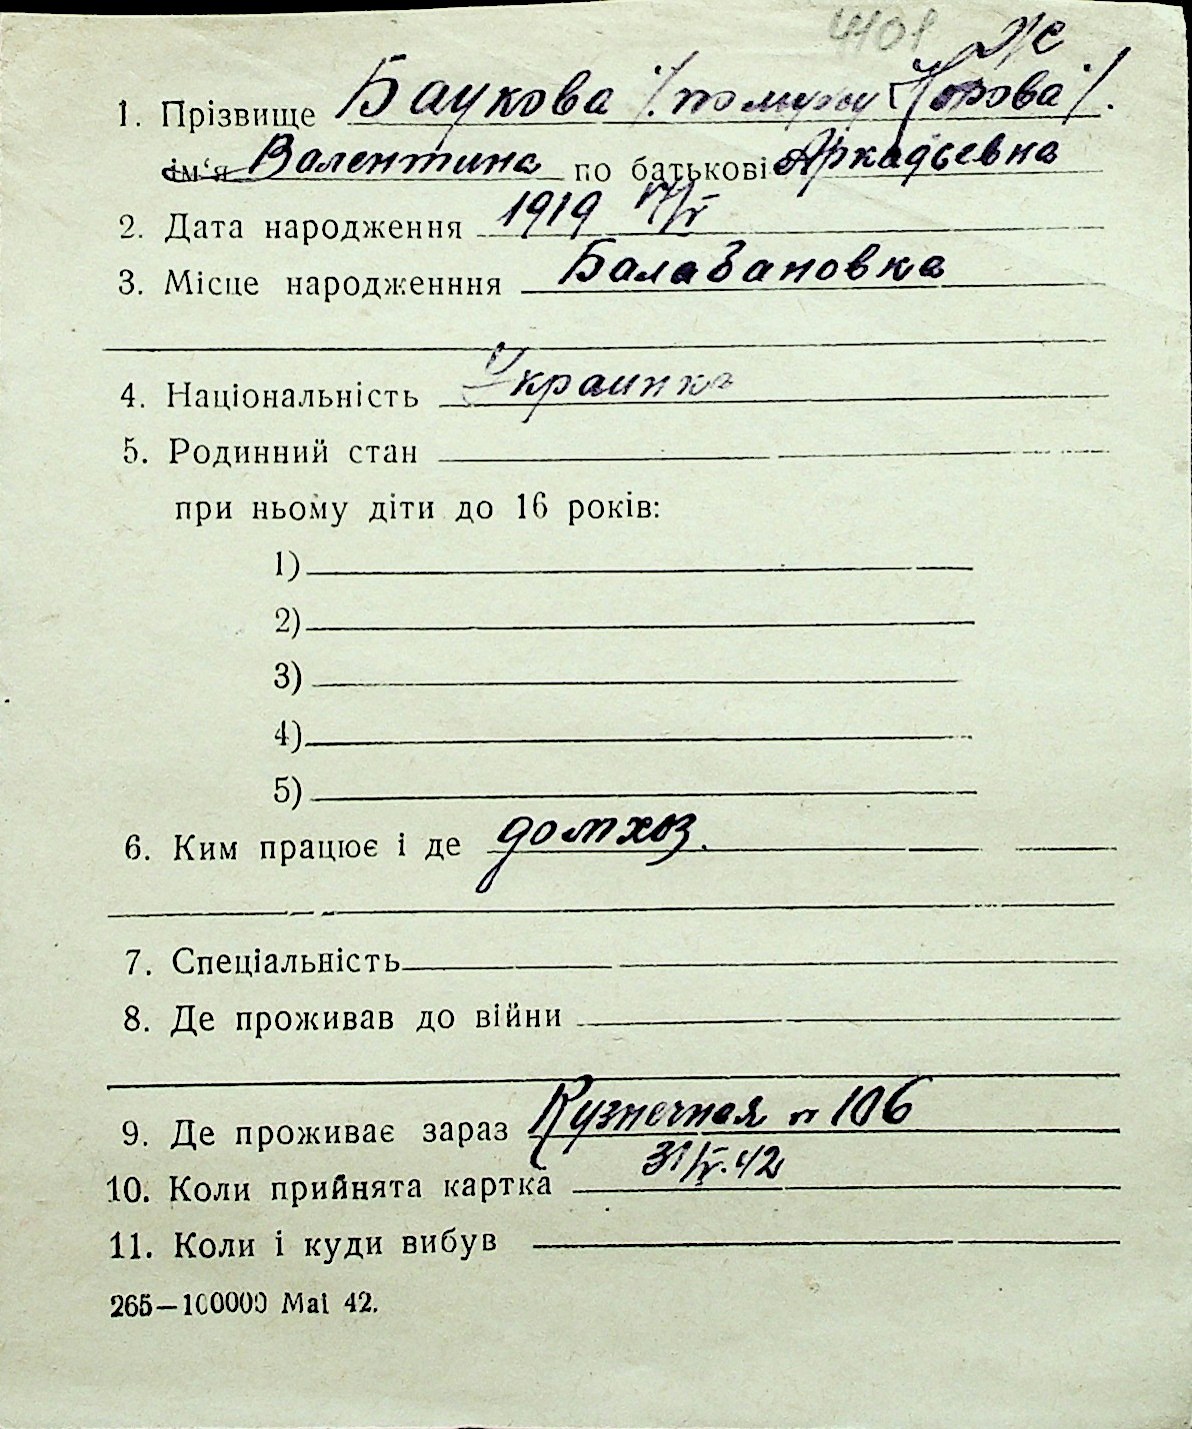 4401 ж
1. Прізвище Баукова /по мужу Попова/.
ім'я Валентина по батькові Аркадьевна
2. Дата народження 1919 17/V
3. Місце народженння Балабановка
4. Національність Украинка
5. Родинний стан
при ньому діти до 16 років:
1)
2)
3)
4)
5)
6. Ким працює і де домхоз.
7. Спеціальність
8. Де проживав до війни
9. Де проживає зараз Кузнечная п 106
10. Коли прийнята картка 31/V.42
11. Коли і куди вибув
265—100000 Mai 42.